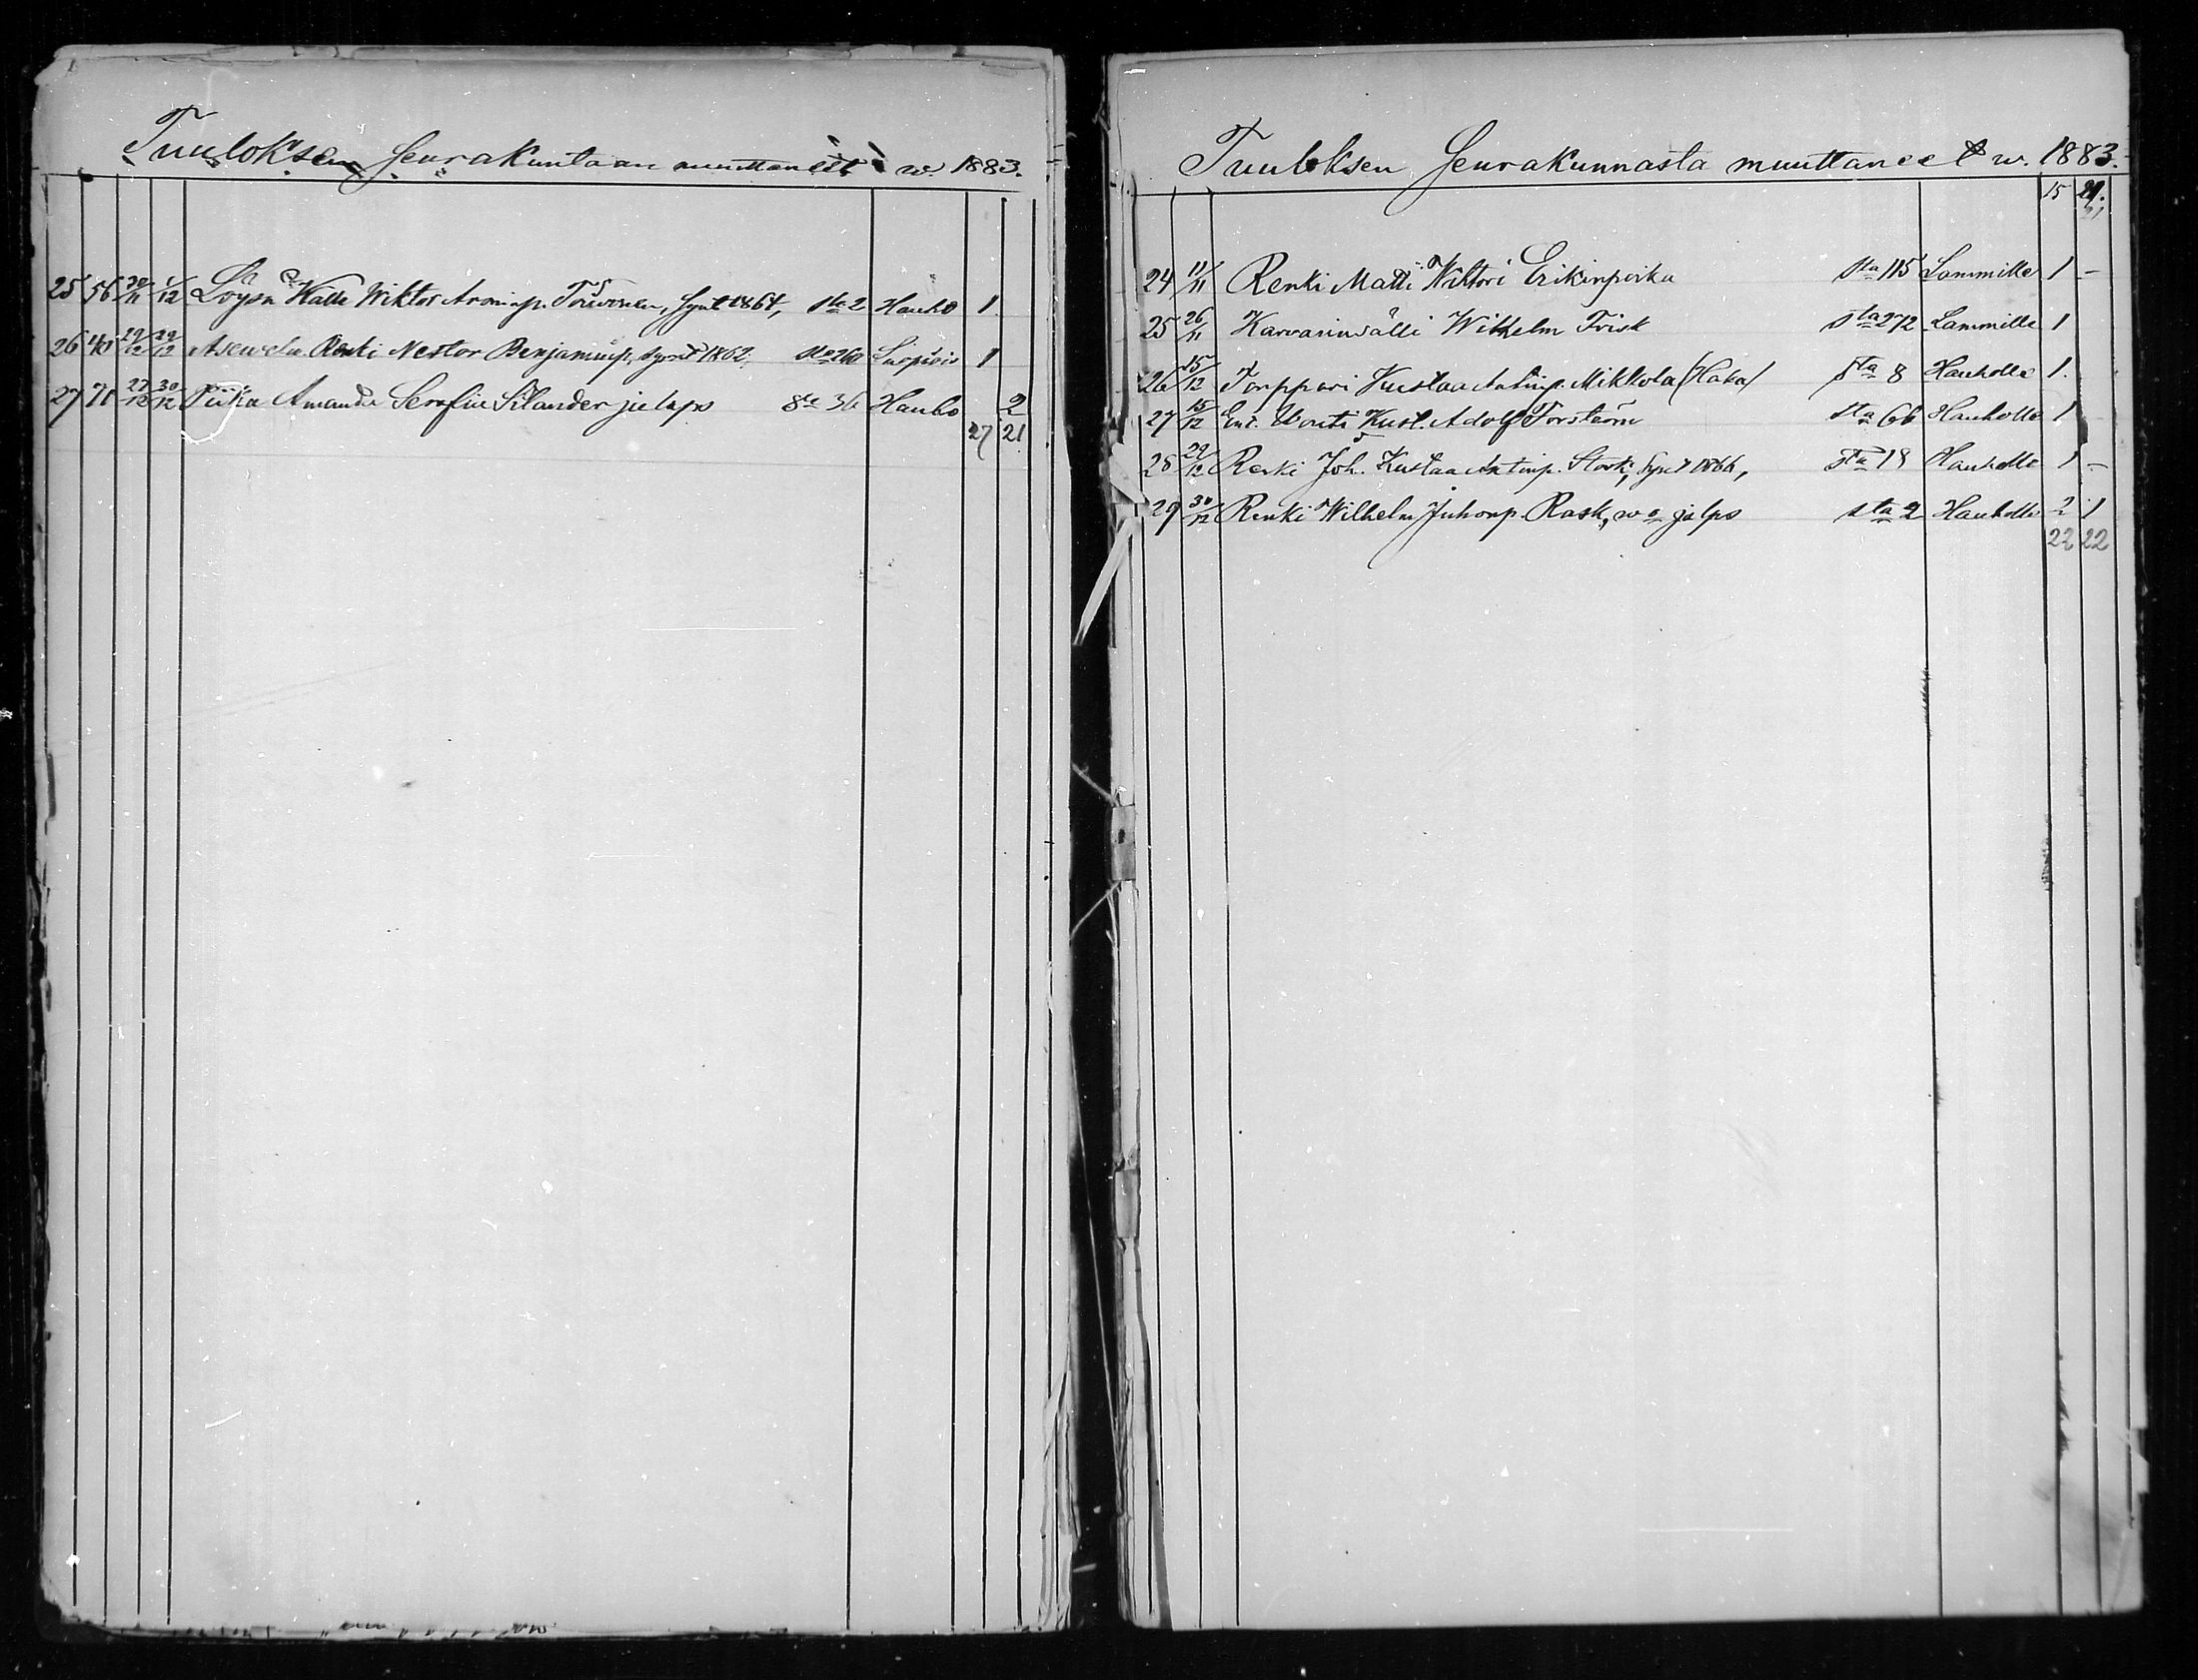 Tuuloksen Seurakuntaan muuttaneet w. 1883.
25 56 30/11 1/12 Löysä Kalle Wiktor Aroninp. Toivonen, Synt 1864, sta 2 Hauho 1.
26 40 29/12 29/12 Aseweln. Renki Nestor Benjaminp. synt 1862. sta 260 Luopiois 1
27 71 27/12 30/12 Piika Amanda Serafiia Silander ja laps sta 36 Hauho 2
27 21
Tuuloksen Seurakunnasta muuttaneet w. 1883.
15 21.
24 11/11 Renki Matti Wiktori Erikinpoika sta 115 Lammille 1 –
25 26/11 Karvarinsälli Wilhelm Frisk sta 272 Lammille 1
26 15/12 Torppari Kustaa Antinp. Mikkola (Haka) sta 8 Hauholle 1.
27 15/12 Ent. Vouti Kust. Adolf Forström sta 66 Hauholle 1
28 29/12 Renki Joh. Kustaa Antinp. Stork, Synt 1866, sta 18 Hauholle 1 –
29 30/12 Renki Wilhelm Juhonp. Rask, wo ja lps sta 2 Hauholle 2 1
22 22